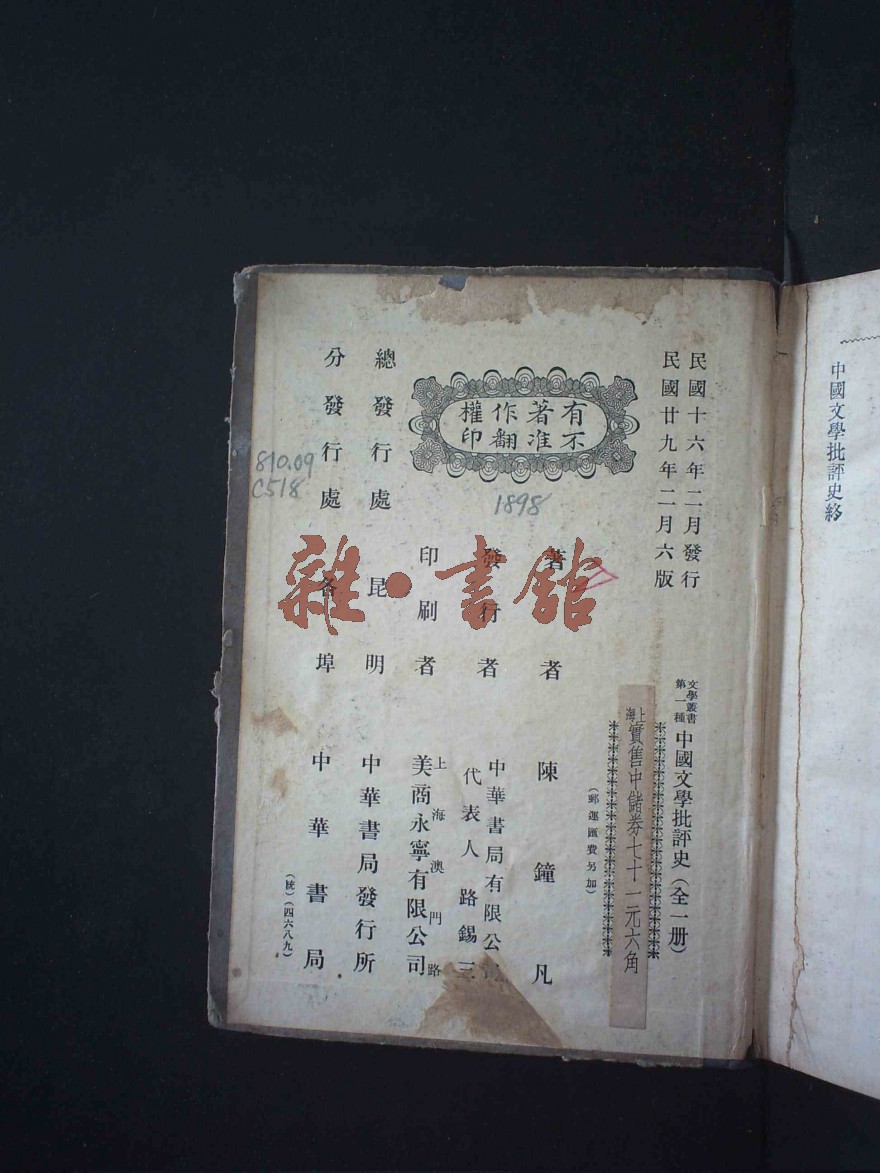 中國文學批評史終
民國十六年二月發行
民國廿九年二月六版
文學叢書
第一種
中國文學批評史（全一册）
上海實售中儲券七十一元六角
（郵運匯費另加）
有著作權
不准翻印
1898
著者 陳鐘凡
發行者 中華書局有限公
代表人 路錫三
印刷者 上海澳門路
美商永寧有限公司
總發行處 昆明 中華書局發行所
分發行處 各埠 中華書局
（統）（四六八九）
810.09
C518
雜·書館